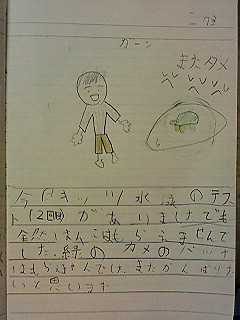 ガーン
またダメ
今日キッツ水泳のテス
ト(2回目)がありましたでも
全然はんこはもらえませんで
した。緑のカメのバッチ
はもらえませんでした。またがんばりた
いと思います